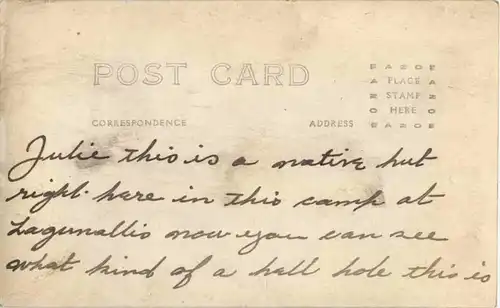 POST CARD
CORRESPONDENCE ADDRESS
PLACE
STAMP
HERE
Julie this is a native hut
right here in this camp at
Lagunallis now you can see
what kind of a hell hole this is